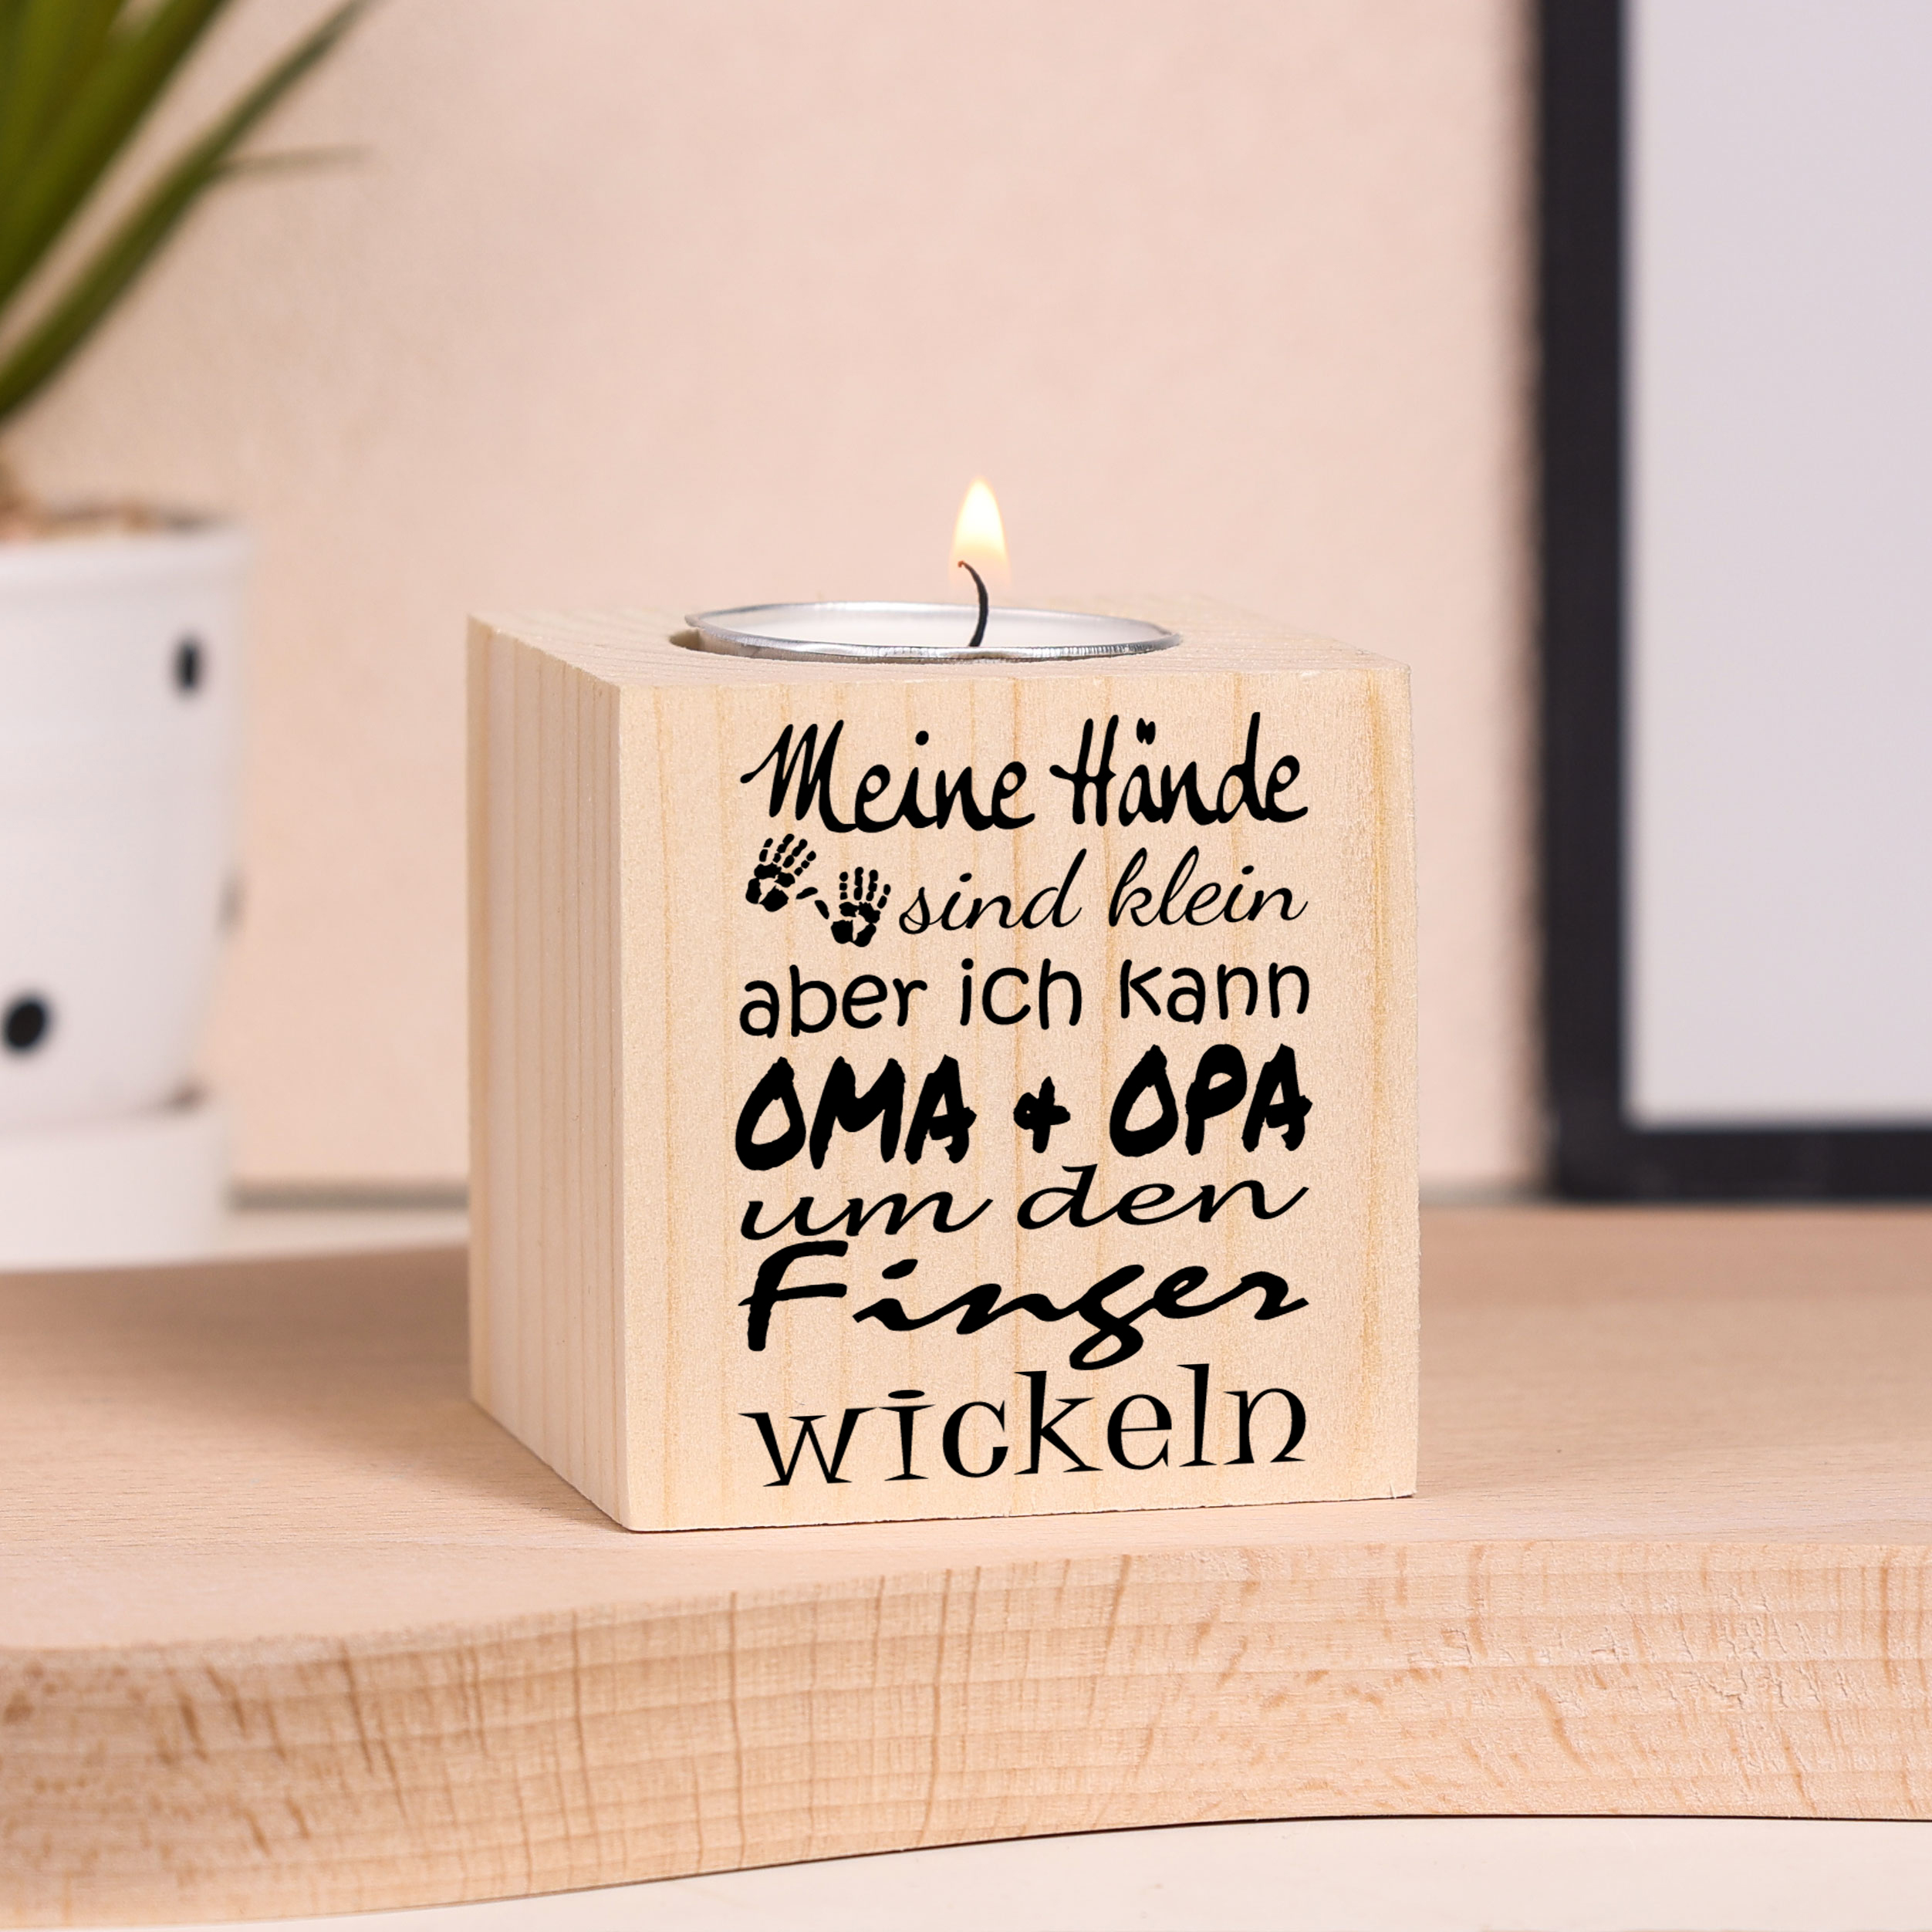 Meine Hände
sind klein
aber ich kann
OMA + OPA
um den
Finger
wickeln